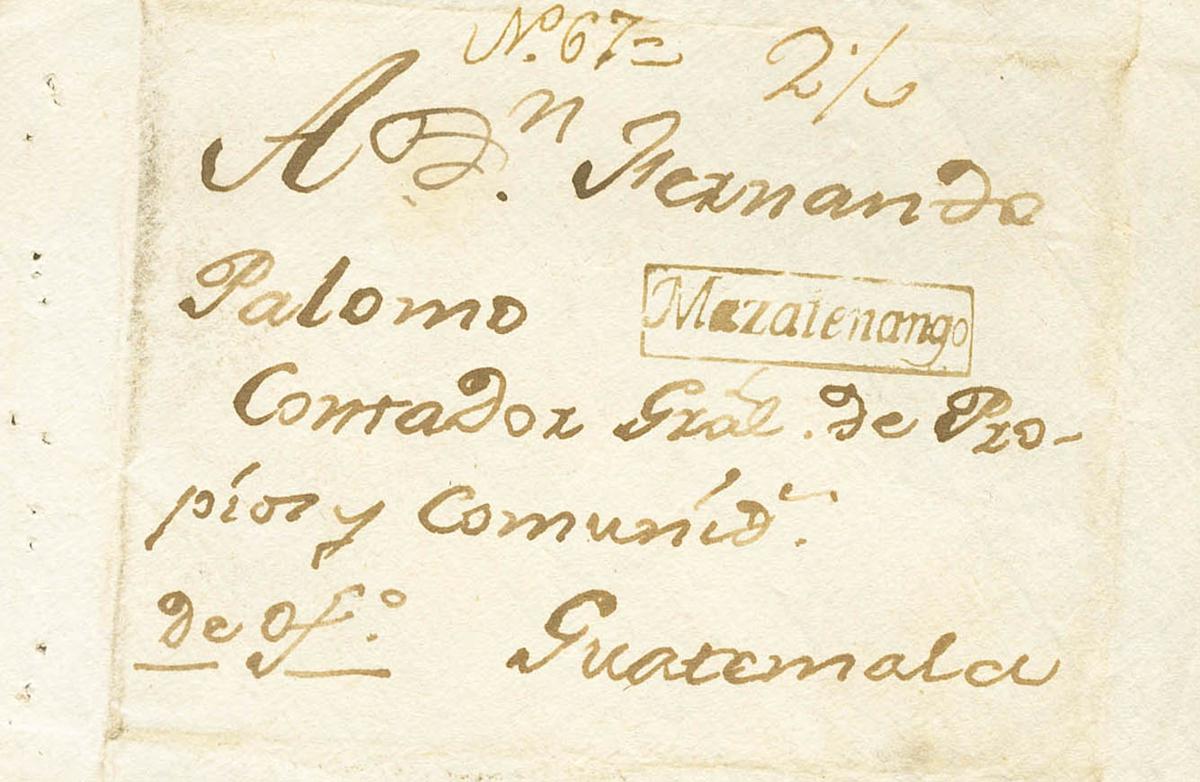 Nº. 67=
2 %
A Dn. Fernando
Palomo
Mazatenango
Contador Grál. de Pro-
pios y Comunids.
de ofº.
Guatemala